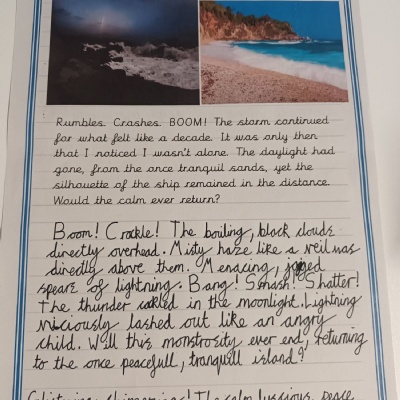 Rumbles. Crashes. BOOM! The storm continued
for what felt like a decade. It was only then
that I noticed I wasn't alone. The daylight had
gone, from the once tranquil sands, yet the
silhouette of the ship remained in the distance.
Would the calm ever return?
Boom! Crackle! The boiling, black clouds
directly overhead. Misty haze like a veil was
directly above them. Menacing, jagged
spears of lightning. Bang! Smash! Shatter!
The thunder cackled in the moonlight. Lightning
viciously lashed out like an angry
child. Will this monstrosity ever end, returning
to the once peacefull, tranquill island?
The calm, luscious, peace